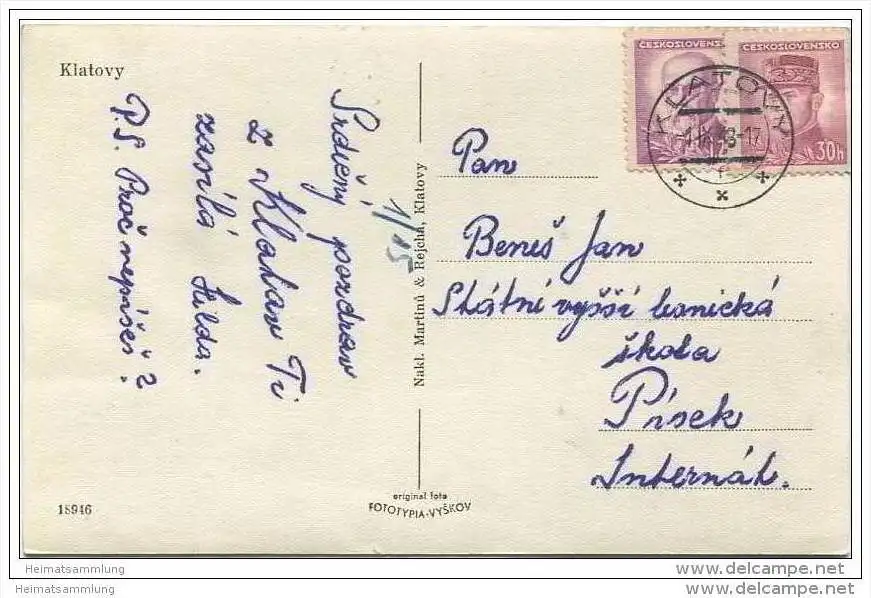 Klatovy
Srdečný pozdrav
z Klatov Ti
zasílá
P.S. Proč nepíšeš?
1/15
Nakl. Martinů & Rejcha, Klatovy
ČESKOSLOVENSKO
ČESKOSLOVENSKO
30h
KLATOVY
Pan
Beneš Jan
Státní vyšší lesnická
škola
Písek
Internát.
18946
original foto
FOTOTYPIA-VYŠKOV
Heimatsammlung
Heimatsammlung
www.delcampe.net
www.delcampe.net